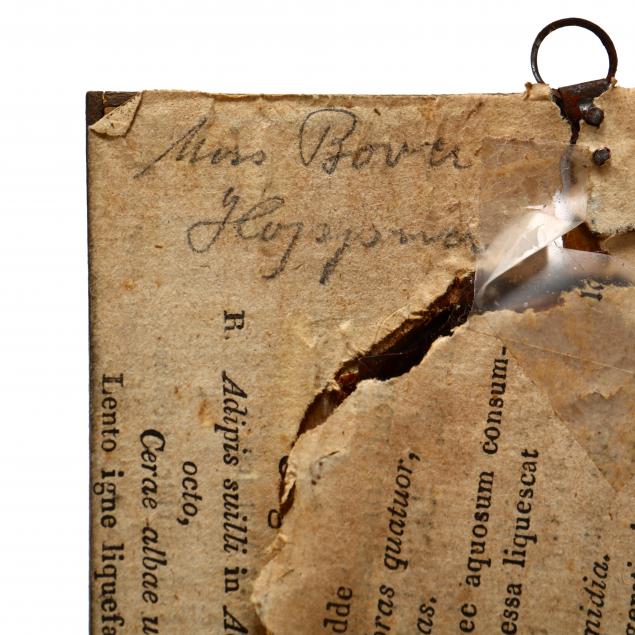 Miss Bover
la
R. Adipis suilli in A
octo,
Cerae albae u
Lento igne liquefa
dde
oras quatuor,
as.
ec aquosum consum-
essa liquescat
nidia.